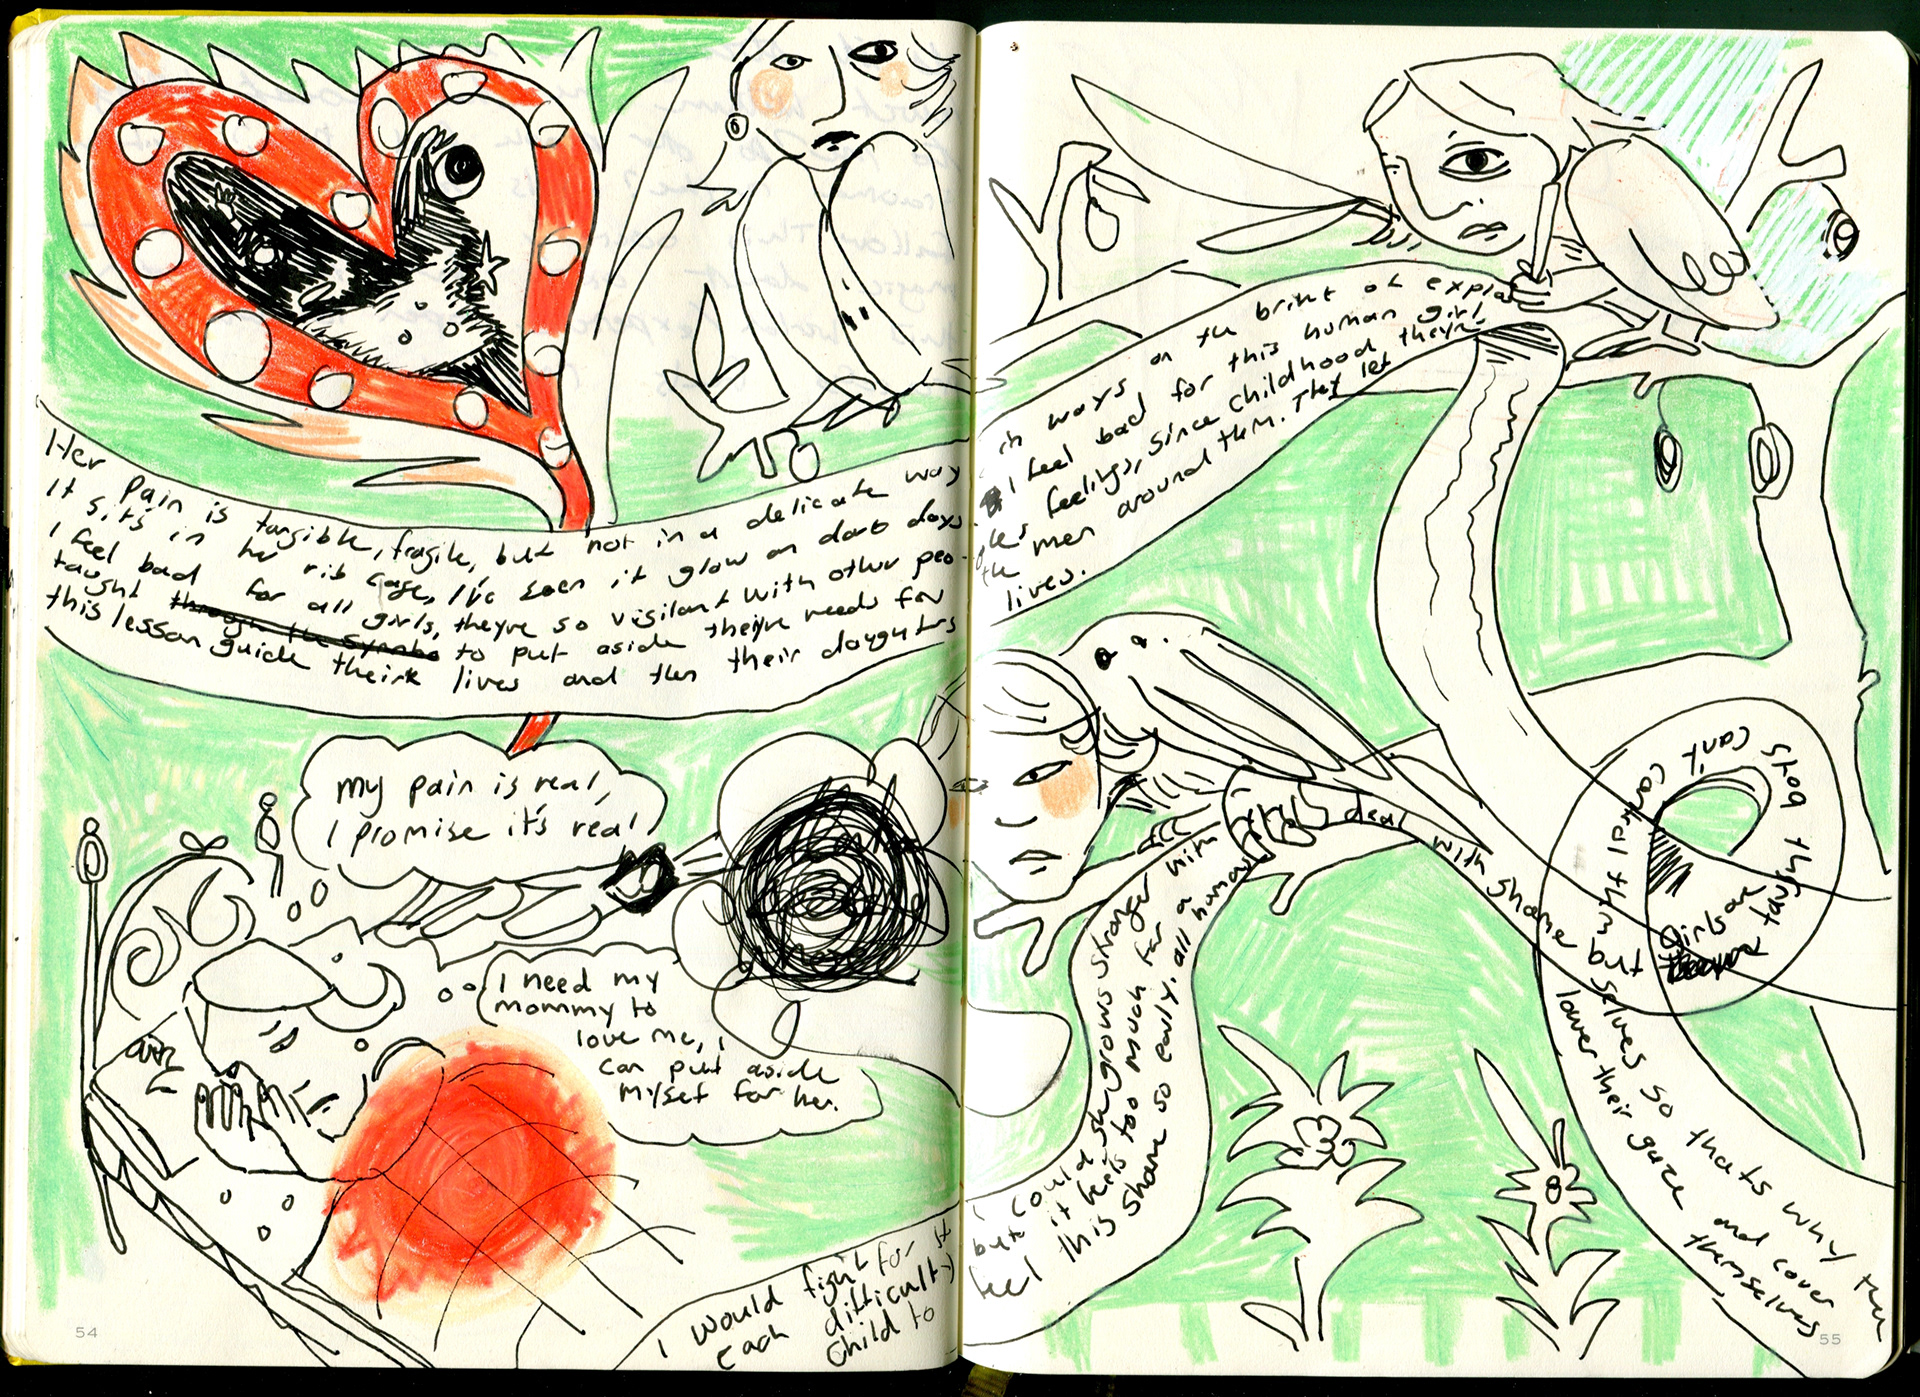 Her Pain is tangible, fragile, but not in a delicate way
It sits in her rib cage, I've seen it glow on dark days
I feel bad for all girls, theyre so vigilant with other peo-
taught to put aside theiyre needs for
this lesson guide their lives and then their daughters
in ways on the brink of explo
I feel bad for this human girl
ples feelings, since childhood theyre
the men around them. They let
lives.
my pain is real,
I promise it's real
I need my
mommy to
love me, I
can put aside
myself for her.
I would fight for it
each difficulty
child to
I could
but she grows stronger with
it feels too much for a
feel this shame so early. all human
deal with shame but
Girls are
taught
boys
cant
control them
selves so thats why they
lower their gaze and cover
themselves
54
55